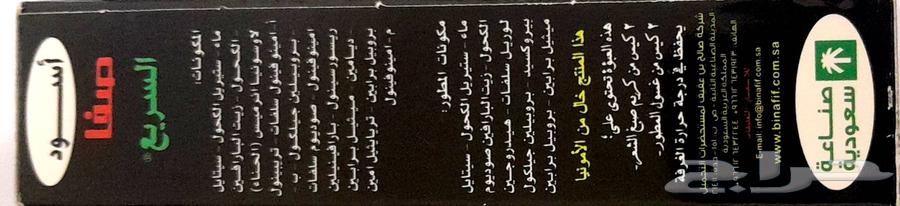 أسود
صفا
السريع®
المكونات:
ماء - ستيريل الكحول - ستايل
- الكحول - زيت البارافين
لاوسونيا انرميس (الحناء)
أمينو فينول - سلفات تريبينول
- بروبيلين جينكول - ب -
امينوفينول - صوديوم سلفات
ريسورسينول - بارافينيلين
ديامين - ميثيل برابين -
بروبيل برابين - تريايثيل امين
م - امينوفينول
مكونات المطور:
ماء - ستيريل الكحول - ستايل
الكحول - زيت البارافين صوديوم
لوريل سلفات - هيدروجين
بيروكسيد - بروبيلين جينكول
ميثيل برابين - بروبيل برابين
هذا المنتج خال من الأمونيا
هذه العبوة تحتوى على:
٢ كيس من كريم صبغ الشعر.
٢ كيس من غسول المطور.
يحفظ في درجة حرارة الغرفة
شركة صالح بن عفيف لمستحضرات التجميل
المملكة العربية السعودية
E-mail: info@binafif.com.sa
www.binafif.com.sa
صناعة
سعودية
حراج